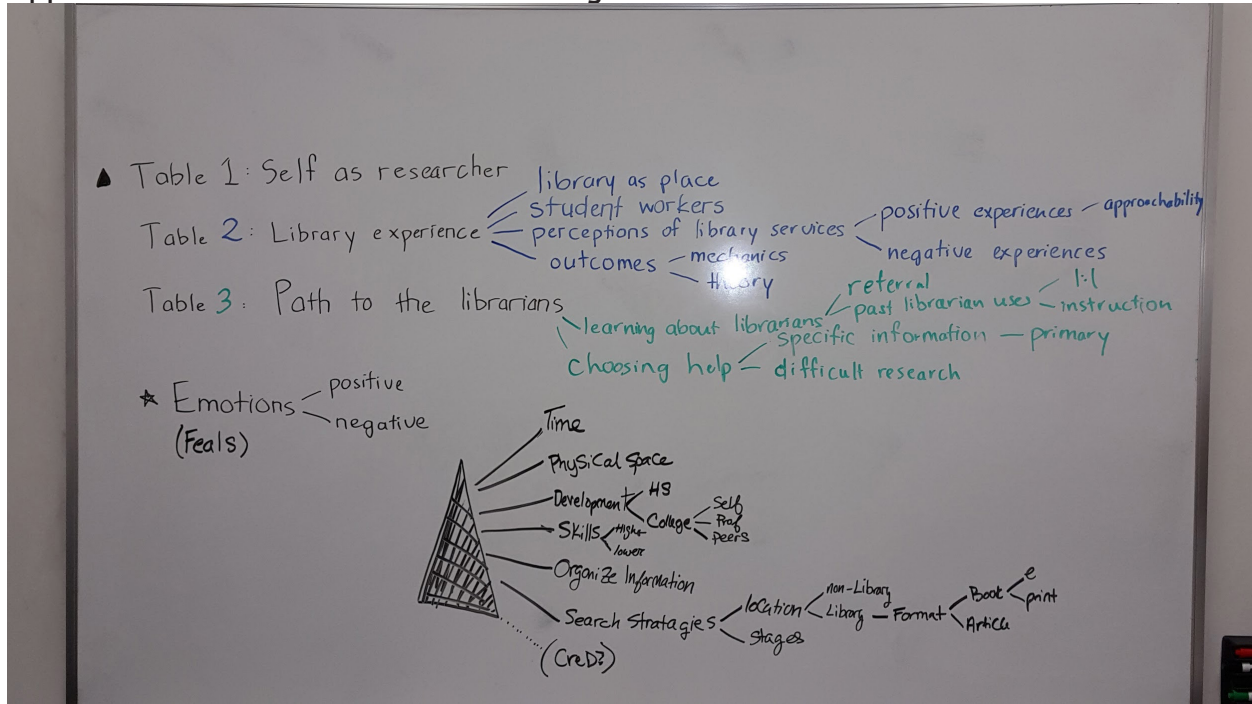 ▲ Table 1: Self as researcher
Table 2: Library experience
library as place
student workers
perceptions of library services
positive experiences
approachability
negative experiences
outcomes
mechanics
theory
Table 3: Path to the librarians
learning about librarians
referral
past librarian uses
1:1
instruction
Choosing help
specific information
primary
difficult research
★ Emotions
(Feals)
positive
negative
Time
Physical Space
Development
HS
College
Self
Prof
Peers
Skills
Higher
lower
Organize Information
Search Stratagies
location
non-Library
Library
Format
Book
e
print
Article
Stages
(CreD?)